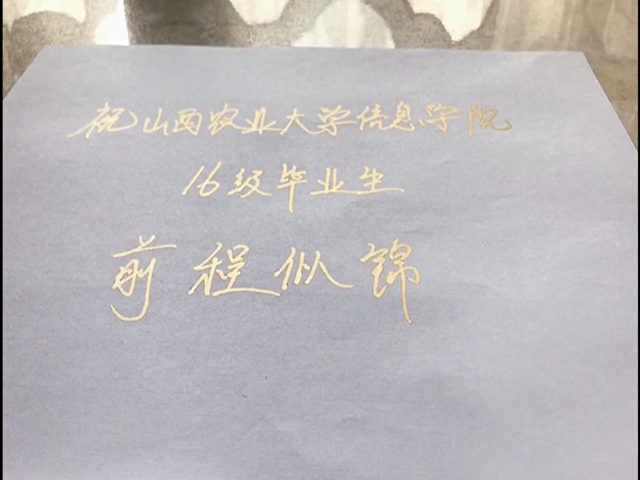 祝山西农业大学信息学院
16级毕业生
前程似锦